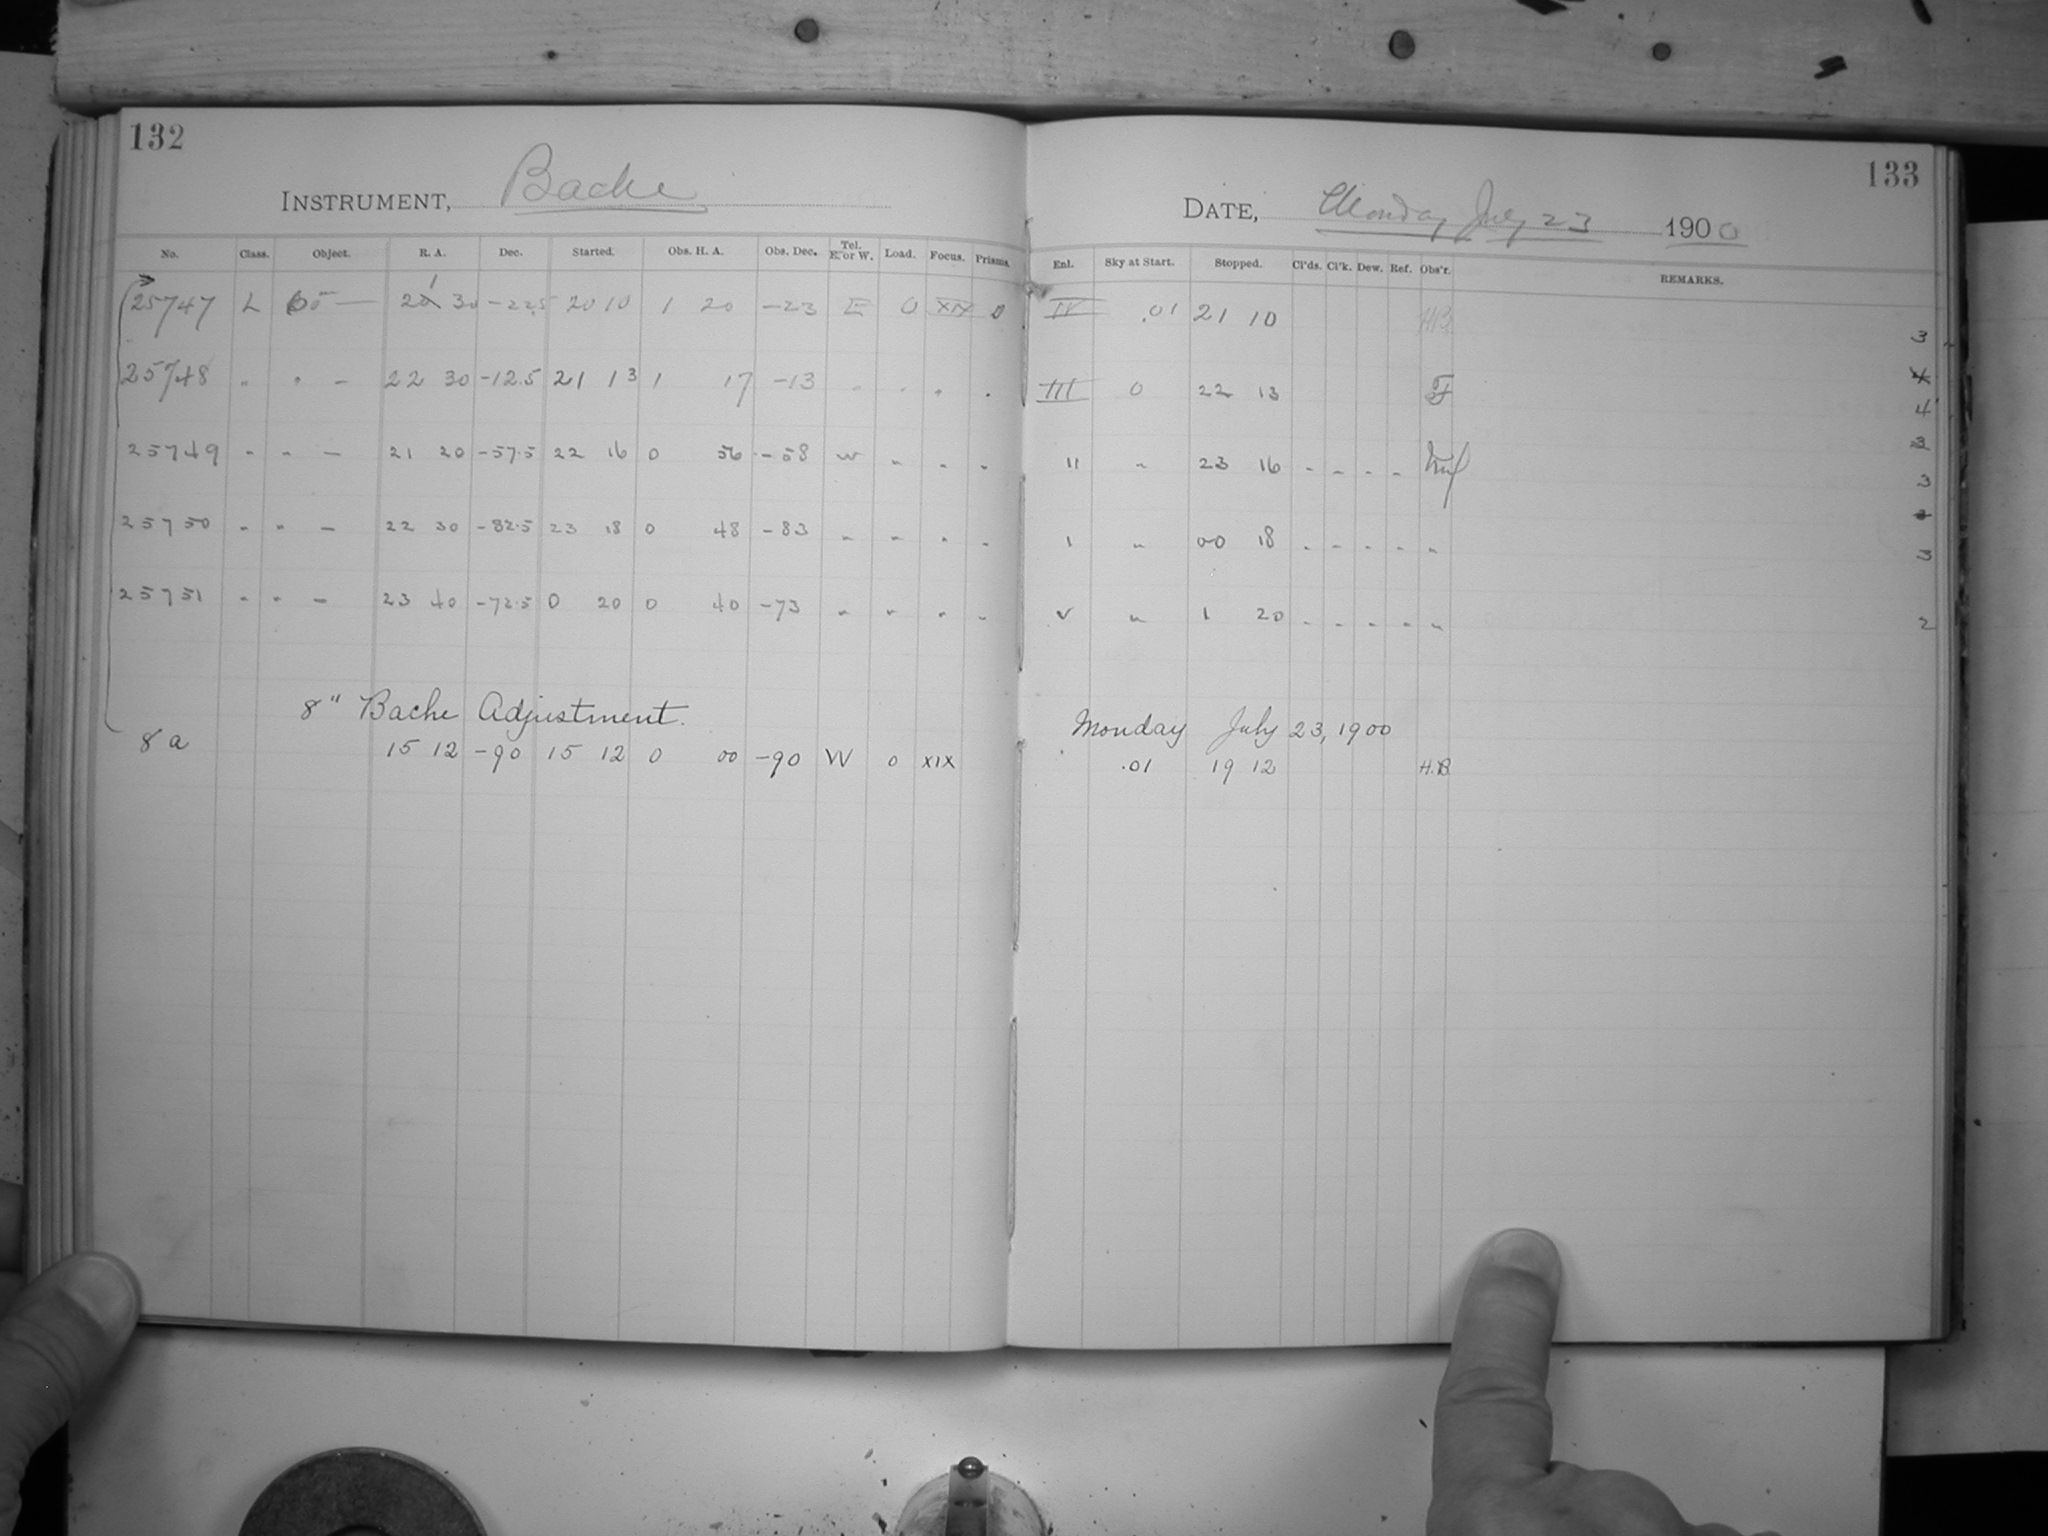 132
INSTRUMENT, Bache
No. Class. Object. R. A. Dec. Started. Obs. H. A. Obs. Dec. Tel. E. or W. Load. Focus. Prisms.
25747 L 60 — 21 30 -22.5 20 10 1 20 -23 E 0 XIX 0
25748 " " — 22 30 -12.5 21 13 1 17 -13 " " " "
25749 " " — 21 20 -57.5 22 16 0 56 -58 W " " "
25750 " " — 22 30 -82.5 23 18 0 48 -83 " " " "
25751 " " — 23 40 -72.5 0 20 0 40 -73 " " " "
8" Bache Adjustment.
8a 15 12 -90 15 12 0 00 -90 W 0 XIX
133
DATE, Monday July 23 1900
Enl. Sky at Start. Stopped. Cl'ds. Cl'k. Dew. Ref. Obs'r. REMARKS.
IV .01 21 10 HB 3
III 0 22 13 4
4
II " 23 16 - - - - 3
3
I " 00 18 " " " " "
3
V " 1 20 " " " " " 2
Monday July 23, 1900
.01 19 12 H.B.